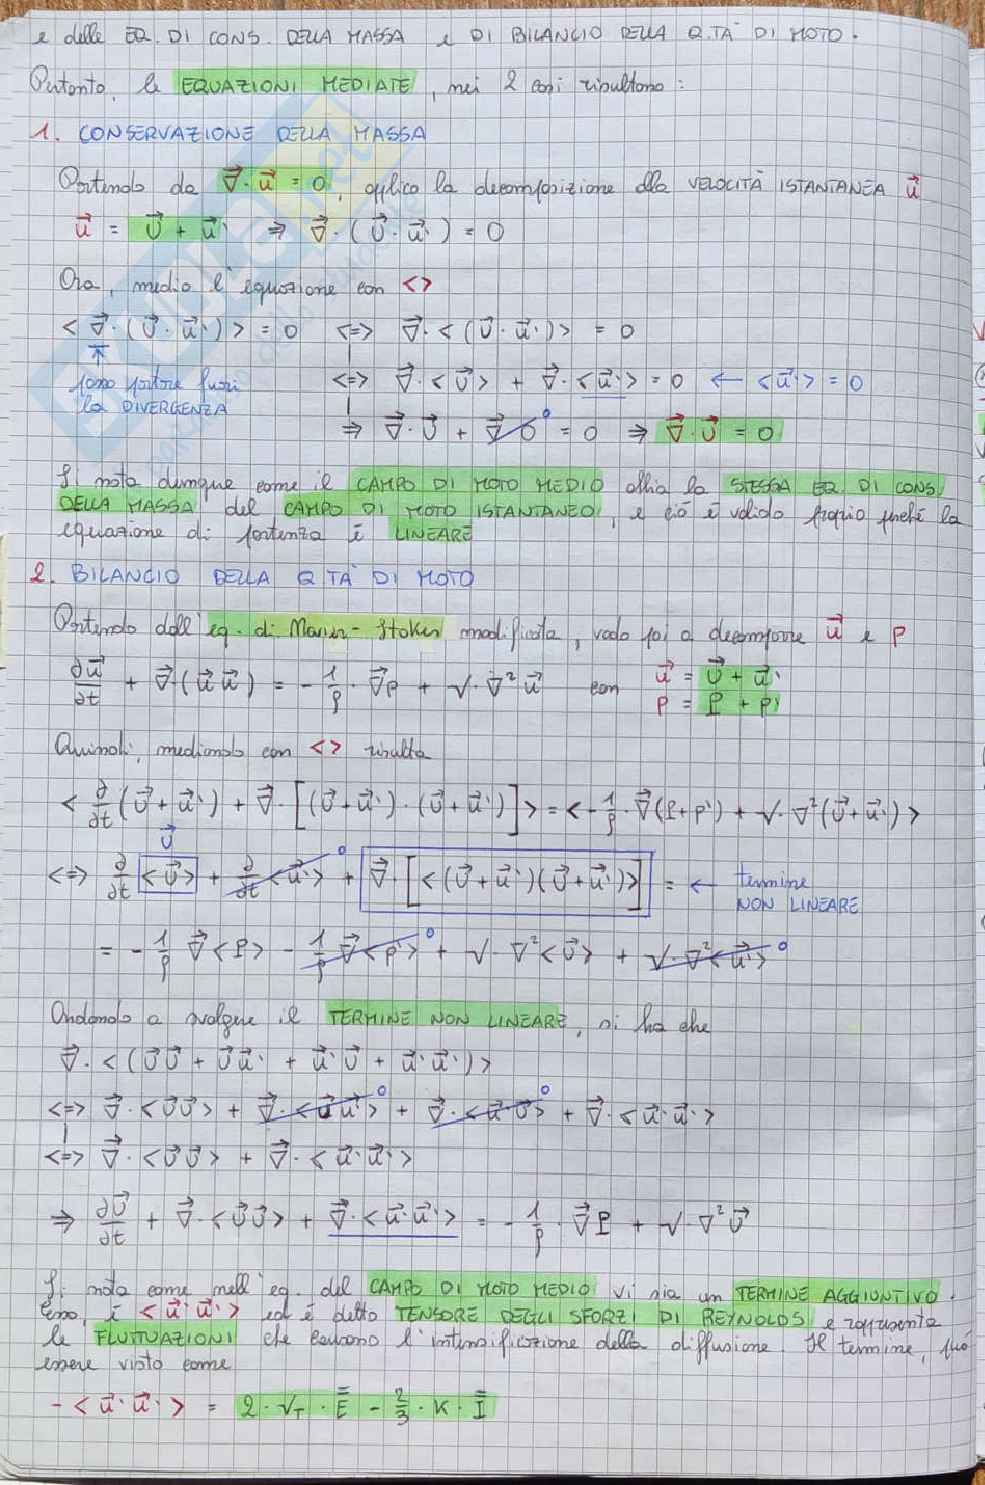 e delle EQ. DI CONS. DELLA MASSA e DI BILANCIO DELLA Q.TÀ DI MOTO.
Pertanto, le EQUAZIONI MEDIATE, nei 2 casi risultano:
1. CONSERVAZIONE DELLA MASSA
Partendo da ∇⃗·u⃗ = 0, applico la decomposizione alla VELOCITÀ ISTANTANEA u⃗
u⃗ = U⃗ + u⃗' ⇒ ∇⃗·(U⃗·u⃗') = 0
Ora, medio l'equazione con <>
<∇⃗·(U⃗·u⃗')> = 0 <=> ∇⃗·<(U⃗·u⃗')> = 0
↑
posso portare fuori <=> ∇⃗·<U⃗> + ∇⃗·<u⃗'> = 0 ← <u⃗'> = 0
la DIVERGENZA
⇒ ∇⃗·U⃗ + ∇⃗·0 0 = 0 ⇒ ∇⃗·U⃗ = 0
Si nota dunque come il CAMPO DI MOTO MEDIO abbia la STESSA EQ. DI CONS.
DELLA MASSA del CAMPO DI MOTO ISTANTANEO, e ciò è valido proprio perché la
equazione di partenza è LINEARE
2. BILANCIO DELLA Q.TÀ DI MOTO
Partendo dall'eq. di Navier-Stokes modificata, vado poi a decomporre u⃗ e p
∂u⃗/∂t + ∇⃗·(u⃗u⃗) = -1/ρ·∇⃗p + ν·∇²u⃗ con u⃗ = U⃗ + u⃗'
p = P + p'
Quindi, mediando con <> risulta
<∂/∂t(U⃗+u⃗') + ∇⃗·[(U⃗+u⃗')·(U⃗+u⃗')]> = <-1/ρ·∇⃗(P+p') + ν·∇²(U⃗+u⃗')>
U⃗
<=> ∂/∂t<U⃗> + ∂/∂t<u⃗'> 0 + ∇⃗·[<(U⃗+u⃗')(U⃗+u⃗')>] = ← termine
NON LINEARE
= -1/ρ ∇⃗<P> - 1/ρ ∇⃗<p'> 0 + ν·∇²<U⃗> + ν·∇²<u⃗'> 0
Andando a svolgere il TERMINE NON LINEARE, si ha che
∇⃗·<(U⃗U⃗ + U⃗u⃗' + u⃗'U⃗ + u⃗'u⃗')>
<=> ∇⃗·<U⃗U⃗> + ∇⃗·<U⃗u⃗'> 0 + ∇⃗·<u⃗'U⃗> 0 + ∇⃗·<u⃗'u⃗'>
<=> ∇⃗·<U⃗U⃗> + ∇⃗·<u⃗'u⃗'>
⇒ ∂U⃗/∂t + ∇⃗·<U⃗U⃗> + ∇⃗·<u⃗'u⃗'> = -1/ρ·∇⃗P + ν·∇²U⃗
Si nota come nell'eq. del CAMPO DI MOTO MEDIO vi sia un TERMINE AGGIUNTIVO.
Esso è <u⃗'u⃗'> ed è detto TENSORE DEGLI SFORZI DI REYNOLDS e rappresenta
le FLUTTUAZIONI che causano l'intensificazione della diffusione. Il termine, può
essere visto come
-<u⃗'u⃗'> = 2·ν_T·E̿ - 2/3·K·I̿